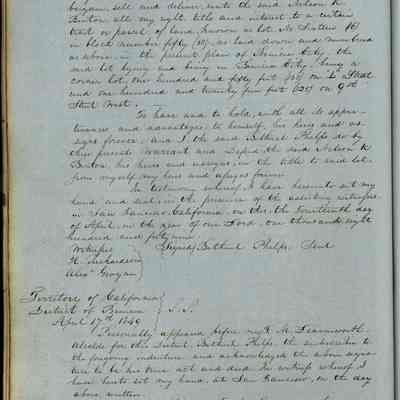 bargain sell and deliver unto the said Nelson K.
Benton all my right title and interest to a certain
tract or parcel of land known as lot No Sixteen (16)
in block number fifty (50), as laid down and numbered
as above in the present plan of Benicia City, the
said lot lying and being in Benicia City, being a
corner lot, one hundred and fifty feet (150) on L Street
and one hundred and twenty five feet (125) on 9th
Street West.
To have and to hold, with all its appur-
tenances and advantages to himself, his heirs and as-
signs forever, and I the said Bethuel Phelps do by
these presents Warrant and Defend the said Nelson K
Benton, his heirs and assigns, in the title to said lot
from myself my heirs and assigns forever
In testimony whereof I have hereunto set my
hand and seal, in the presence of the assisting witnesses
in San Francisco, California, on this the fourteenth day
of April, in the year of our Lord, one thousand eight
hundred and forty nine
Witnesses Signed, Bethuel Phelps, Seal
H. Richardson
Alex Grogan
Territory of California
District of Benicia S.S.
April 17th 1849
Personally appeared before me,
Alcalde for this District, Bethuel Phelps, the subscriber to
the foregoing indenture and acknowledged the above signa-
ture to be his true act and deed. In witness whereof I
have hereto set my hand, at San Francisco, on the day
above written.